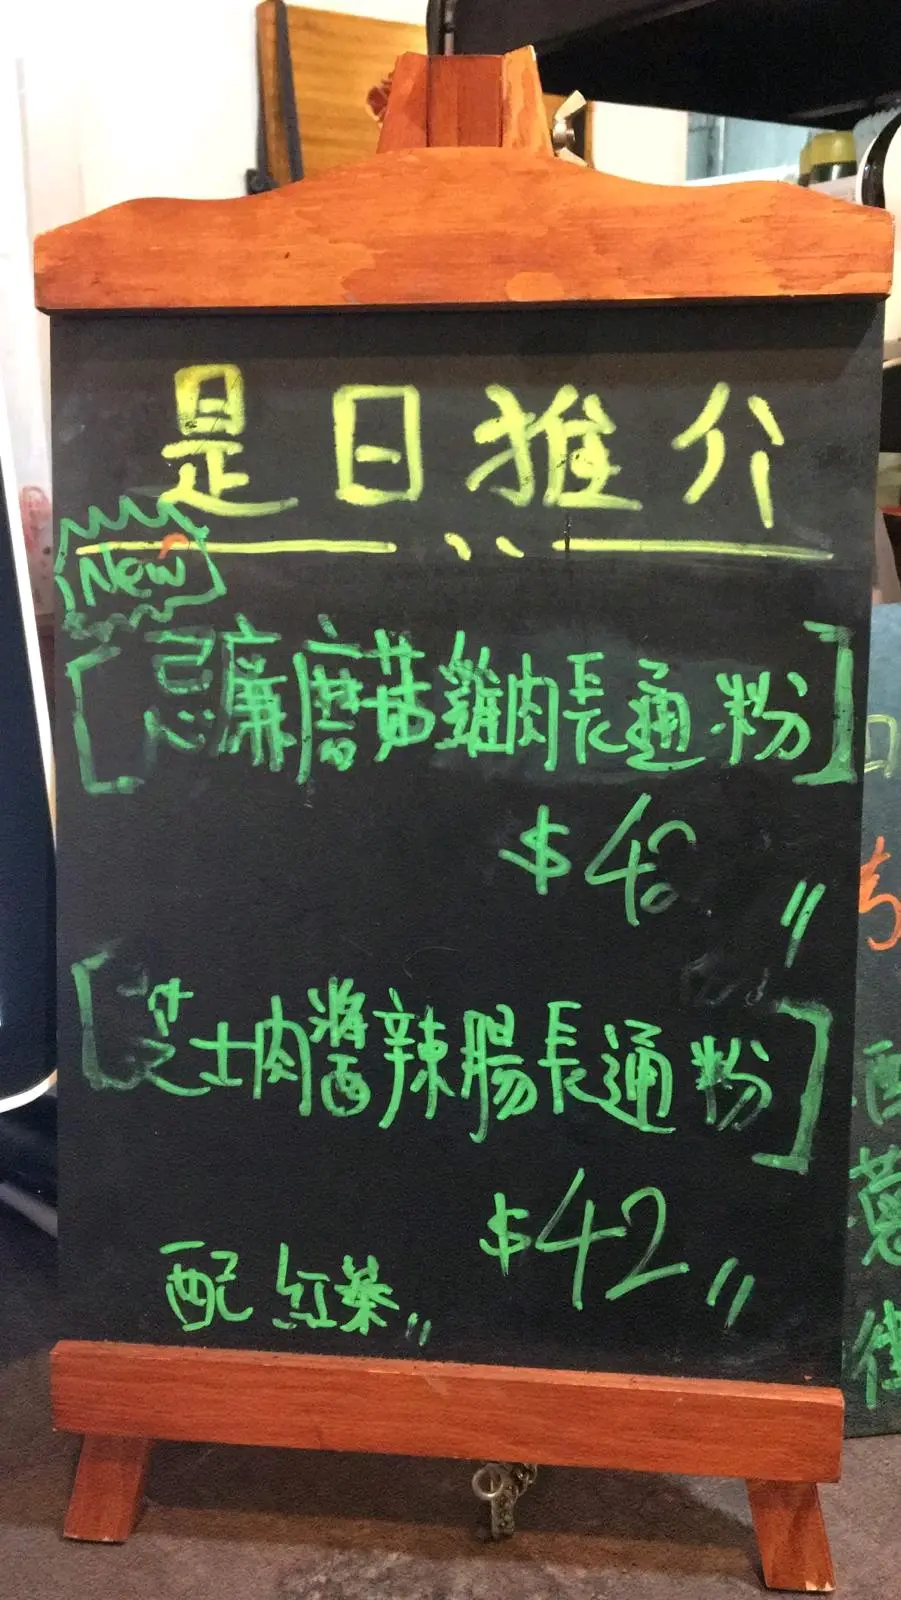 是日推介
New
[忌廉磨菇雞肉長通粉]
$48"
[芝士肉醬辣腸長通粉]
$42"
配紅茶"